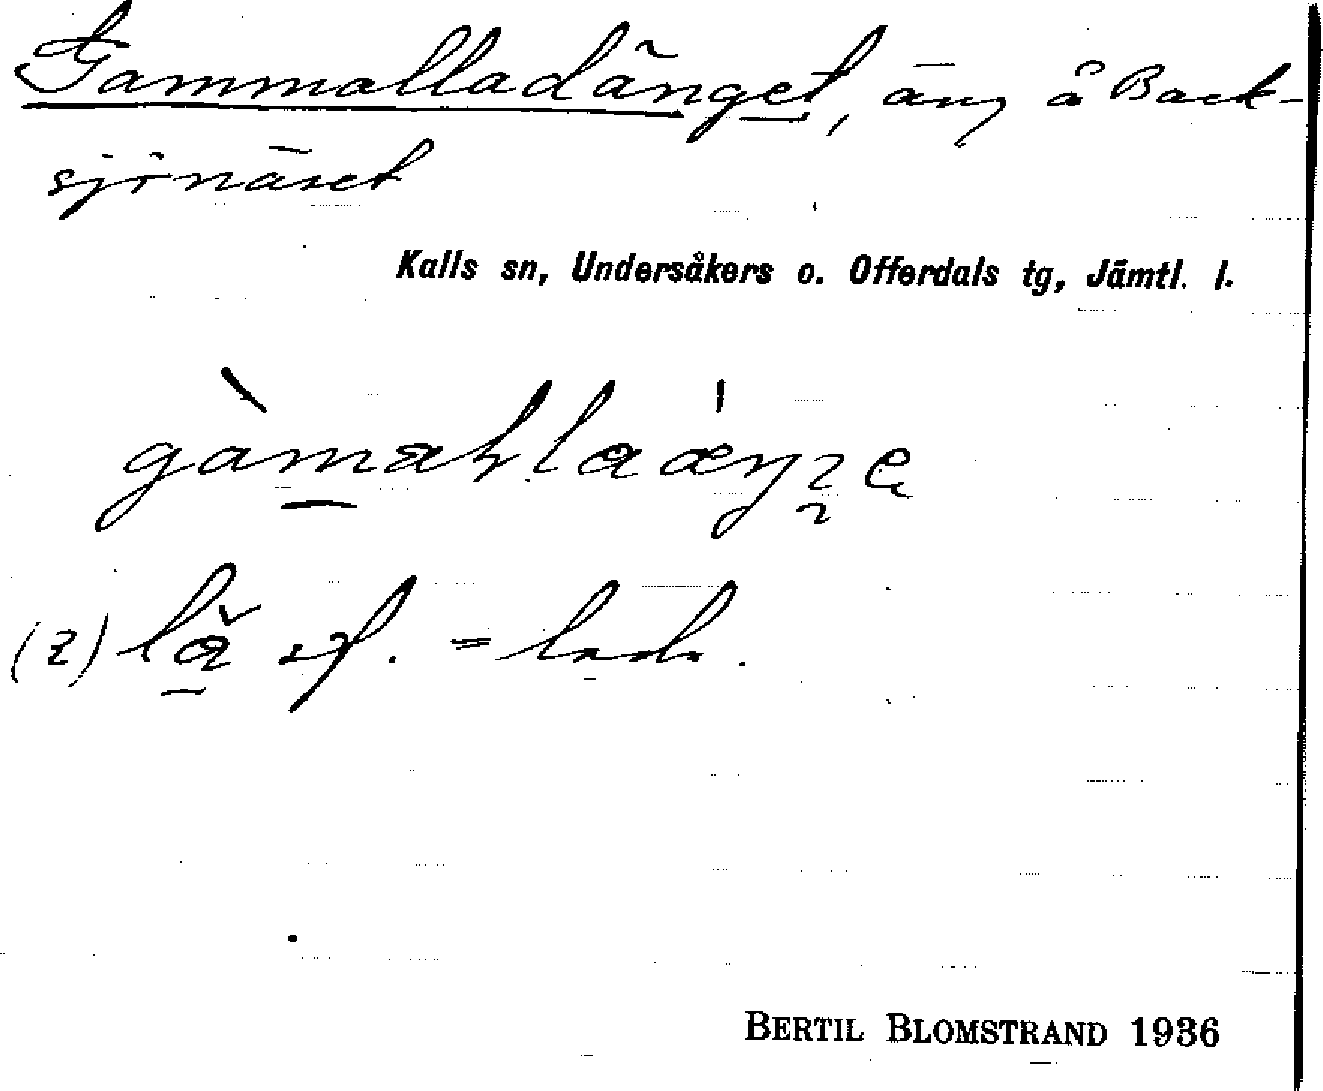 Gammalladänget, äng å Back-
sjönäset
Kalls sn, Undersåkers o. Offerdals tg, Jämtl. l.
(2) sf. = lada.
BERTIL BLOMSTRAND 1936